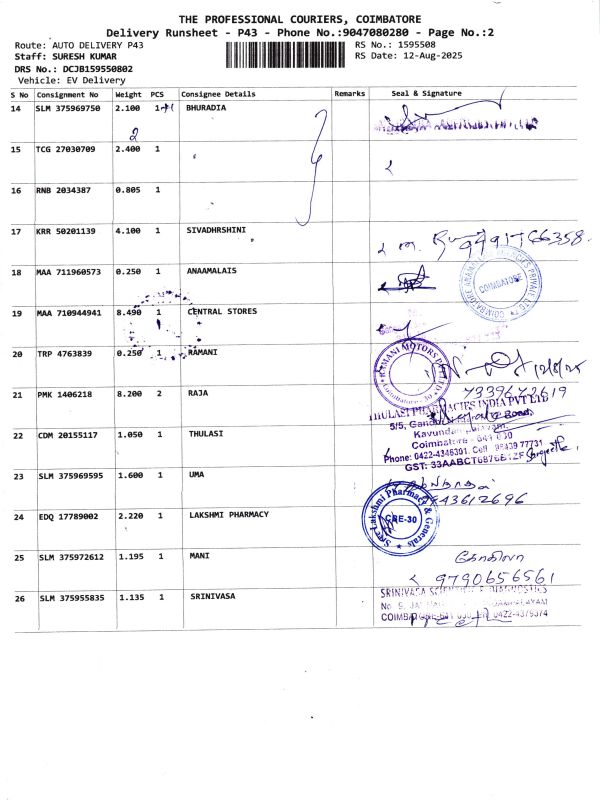 THE PROFESSIONAL COURIERS, COIMBATORE
Delivery Runsheet - P43 - Phone No.:9047080280 - Page No.:2
Route: AUTO DELIVERY P43
RS No.: 1595508
Staff: SURESH KUMAR
RS Date: 12-Aug-2025
DRS No.: DCJB159550802
Vehicle: EV Delivery
S No Consignment No Weight PCS Consignee Details Remarks Seal & Signature
14 SLM 375969750 2.100 1 BHURADIA
2
15 TCG 27030709 2.400 1
16 RNB 2034387 0.805 1
17 KRR 50201139 4.100 1 SIVADHRSHINI
9491766358
18 MAA 711960573 0.250 1 ANAAMALAIS
COIMBATORE
19 MAA 710944941 8.490 1 CENTRAL STORES
20 TRP 4763839 0.250 1 RAMANI
RAMANI MOTORS PVT LTD
Coimbatore - 30
12/8/25
21 PMK 1406218 8.200 2 RAJA
7339672619
THULASI PHARMACIES INDIA PVT LTD
22 CDM 20155117 1.050 1 THULASI
Coimbatore - 641 030
Phone: 0422-4346391, Cell: 95439 77731
GST: 33AABCT6876B1ZF
23 SLM 375969595 1.600 1 UMA
9843612696
24 EDQ 17789002 2.220 1 LAKSHMI PHARMACY
Sree Lakshmi Pharmacy & Generals
CBE-30
25 SLM 375972612 1.195 1 MANI
கோகிலா
9790656561
26 SLM 375955835 1.135 1 SRINIVASA
SRINIVASA SCIENTIFIC & DIAGNOSTICS